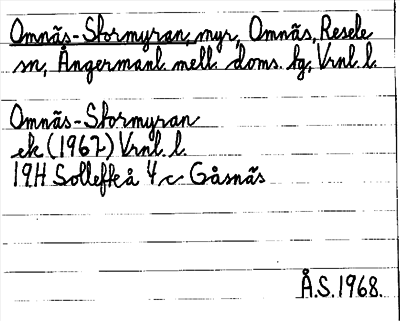 Omnäs-Stormyran, myr, Omnäs, Resele
sn, Ångermanl. mell. doms. hg, Vrnl. l.
Omnäs-Stormyran
ek (1967) Vrnl. l.
19H Sollefteå 4 c Gåsnäs
Å.S. 1968.